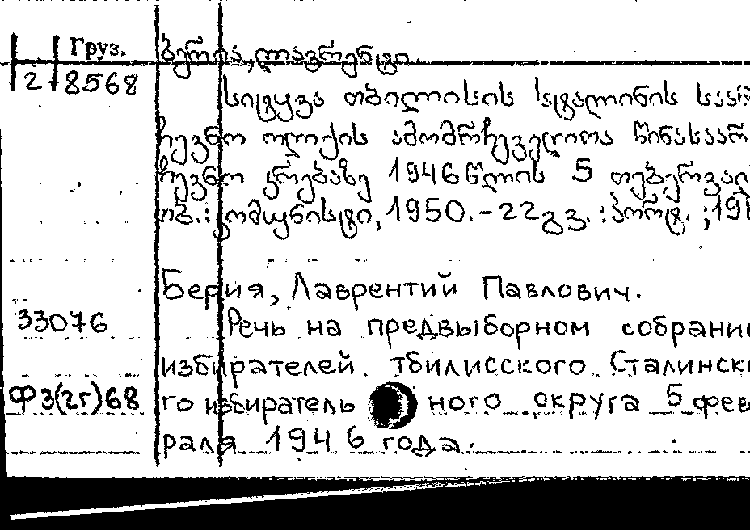 Груз.
2 8568
ბერია, ლავრენტი.
სიტყვა თბილისის სტალინის საარ
ჩევნო ოლქის ამომრჩეველთა წინასაარ
ჩევნო კრებაზე 1946 წლის 5 თებერვა
თბ.: კომუნისტი, 1950. - 22 გვ. : პორტ. ; 19
Берия, Лаврентий Павлович.
33076
Речь на предвыборном собрани
избирателей Тбилисского Сталинск
Ф3(2г)68
го избирательного округа 5 фев
раля 1946 года.